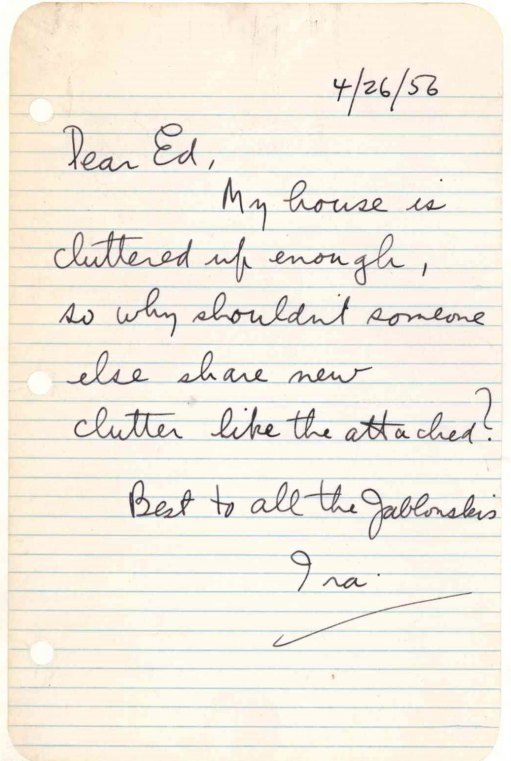 4/26/56
Dear Ed,
My house is
cluttered up enough,
so why shouldn't someone
else share new
clutter like the attached?
Best to all the Jablonskis
Ira.